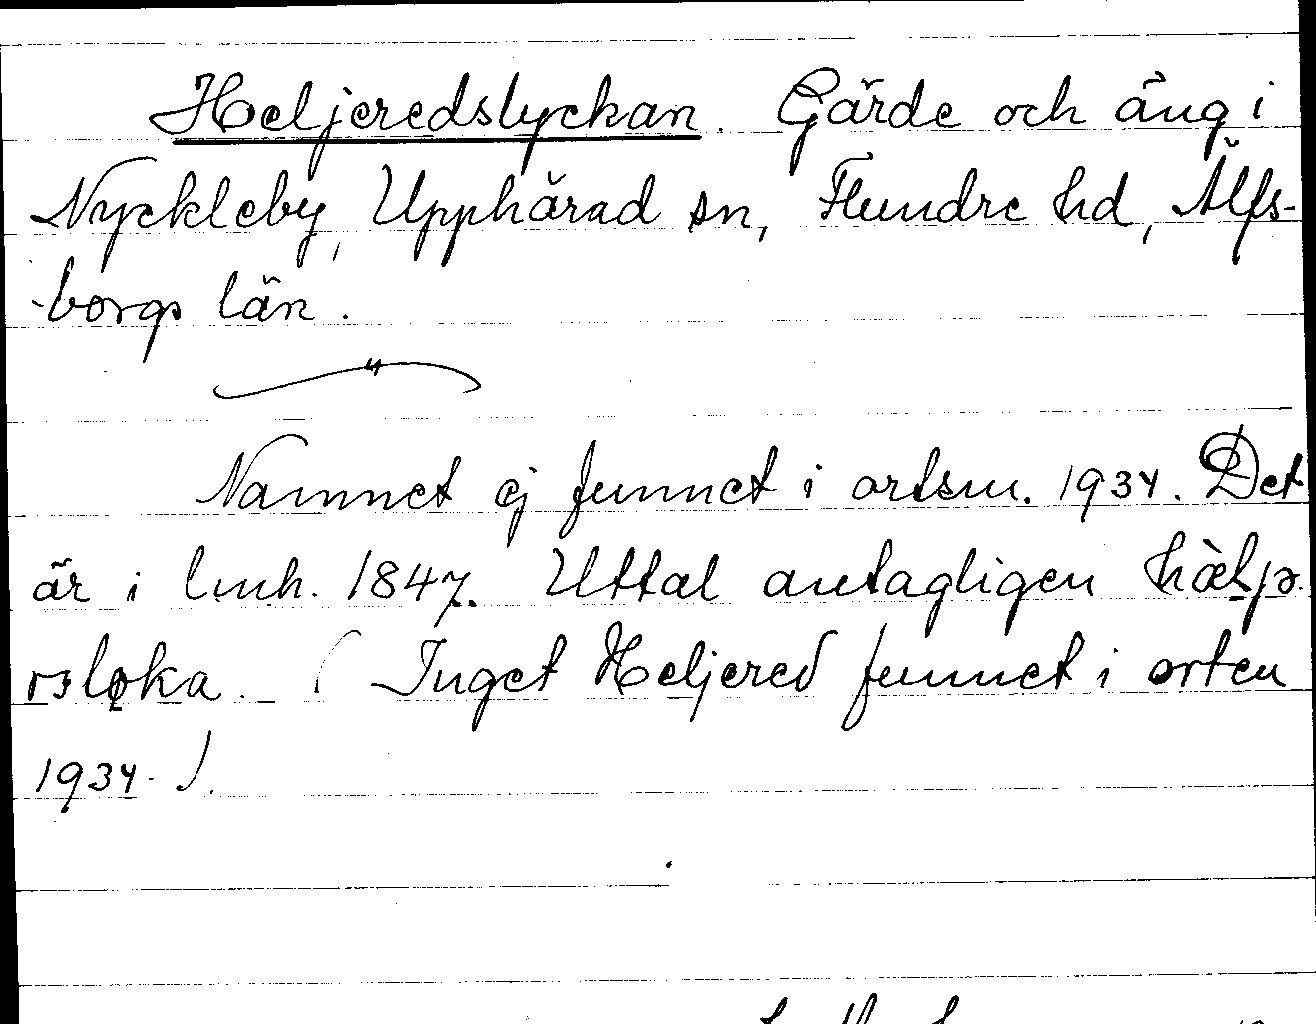 Heljeredslyckan. Gärde och äng i
Nyckleby, Upphärad sn, Flundre hd, Älfs-
borgs län.
Namnet ej funnet i ortsm. 1934. Det
är i lmh. 1847. Uttal antagligen
(Inget Heljered funnet i orten
1934.).